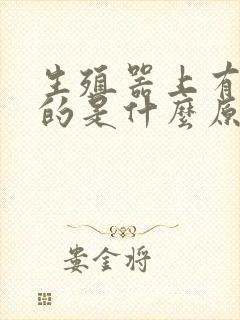 生殖器上有
的是什麼原
娄金将